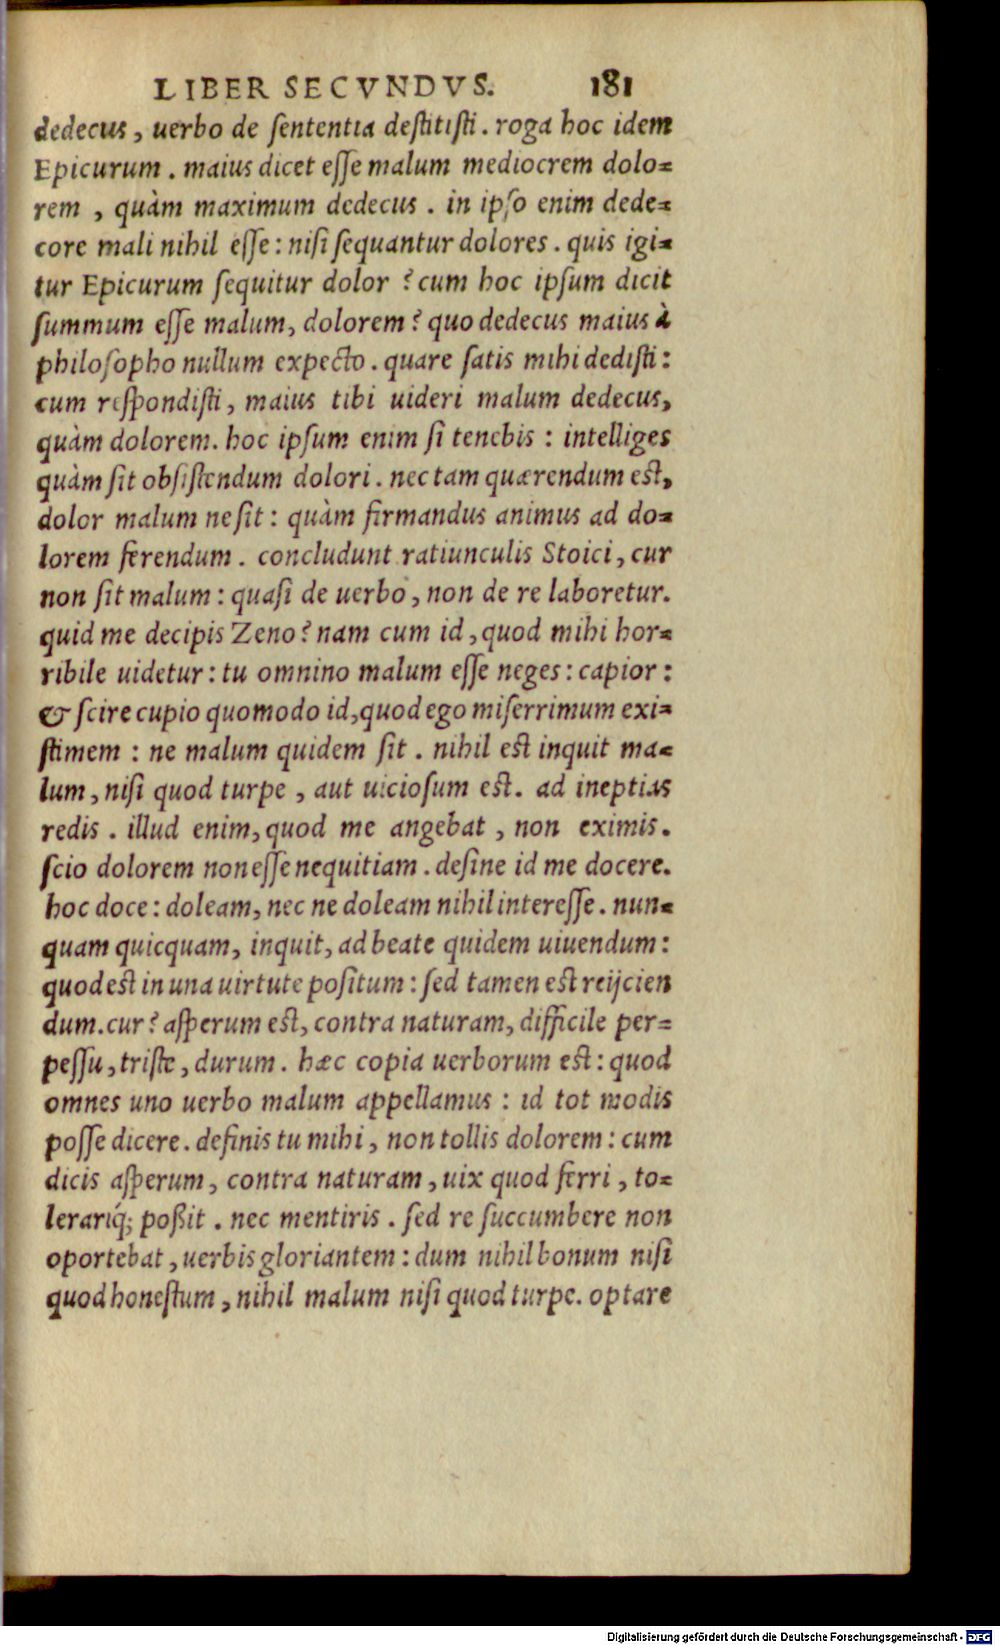 LIBER SECVNDVS. 181
dedecus, uerbo de ſententia deſtitiſti. roga hoc idem
Epicurum. maius dicet eſſe malum mediocrem dolo=
rem, quàm maximum dedecus. in ipſo enim dede=
core mali nihil eſſe: niſi ſequantur dolores. quis igi=
tur Epicurum ſequitur dolor? cum hoc ipſum dicit
ſummum eſſe malum, dolorem? quo dedecus maius à
philoſopho nullum expecto. quare ſatis mihi dediſti:
cum reſpondiſti, maius tibi uideri malum dedecus,
quàm dolorem. hoc ipſum enim ſi tenebis: intelliges
quàm ſit obſiſtendum dolori. nec tam quærendum eſt,
dolor malum ne ſit: quàm firmandus animus ad do=
lorem ferendum. concludunt ratiunculis Stoici, cur
non ſit malum: quaſi de uerbo, non de re laboretur.
quid me decipis Zeno? nam cum id, quod mihi hor=
ribile uidetur: tu omnino malum eſſe neges: capior:
& ſcire cupio quomodo id, quod ego miſerrimum exi=
ſtimem: ne malum quidem ſit. nihil eſt inquit ma=
lum, niſi quod turpe, aut uicioſum eſt. ad ineptias
redis. illud enim, quod me angebat, non eximis.
ſcio dolorem non eſſe nequitiam. deſine id me docere.
hoc doce: doleam, nec ne doleam nihil intereſſe. nun=
quam quicquam, inquit, ad beate quidem uiuendum:
quod eſt in una uirtute poſitum: ſed tamen eſt reijcien
dum. cur? aſperum eſt, contra naturam, difficile per=
peſſu, triſte, durum. hæc copia uerborum eſt: quod
omnes uno uerbo malum appellamus: id tot modis
poſſe dicere. definis tu mihi, non tollis dolorem: cum
dicis aſperum, contra naturam, uix quod ferri, to=
lerariq́; poßit. nec mentiris. ſed re ſuccumbere non
oportebat, uerbis gloriantem: dum nihil bonum niſi
quod honeſtum, nihil malum niſi quod turpe. optare
Digitalisierung gefördert durch die Deutsche Forschungsgemeinschaft - DFG